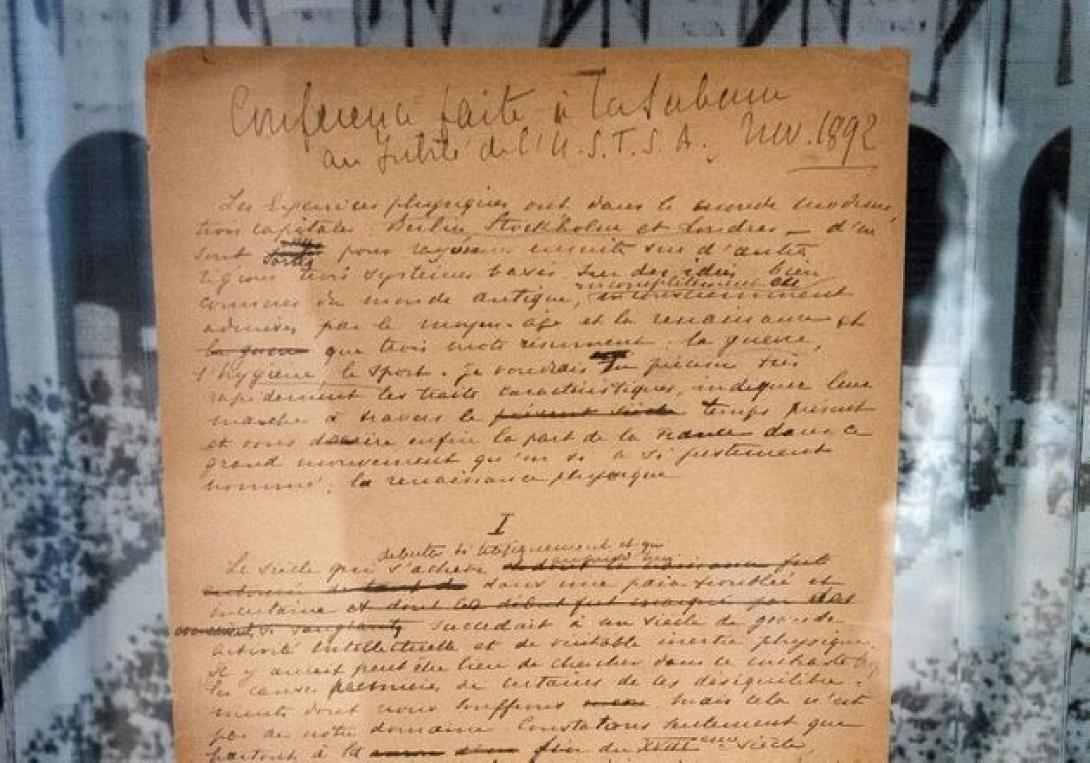 Conférence faite à la Sorbonne
au Jubilé de l'U.S.F.S.A. Nov. 1892
Les Exercices physiques ont dans le monde moderne
trois capitales : Berlin Stockholm et Londres — d'où
sont sortis pour rayonner ensuite sur d'autres
régions trois systèmes basés sur des idées bien
incomplètement
connues du monde antique,
admises par le moyen-âge et la renaissance et
la guerre que trois mots résument : la guerre,
l'hygiène, le sport. je voudrais préciser très
rapidement les traits caractéristiques, indiquer leur
marche à travers le présent siècle temps présent
et vous décrire enfin la part de la France dans ce
grand mouvement qu'on a si justement
nommé : la renaissance physique
I
débuta si tragiquement et qui
Le siècle qui s'achève fut
dans une paix troublée et
incertaine et dont le début fut marqué par des
si sanglants succédait à un siècle de grande
activité intellectuelle et de véritable inertie physique.
Il y aurait peut être lieu de chercher dans ce contraste
les causes premières de certains de ces déséquilibre-
ments dont nous souffrons. mais cela n'est
pas de notre domaine. Constatons seulement que
partout à la fin du XVIIIeme siècle,